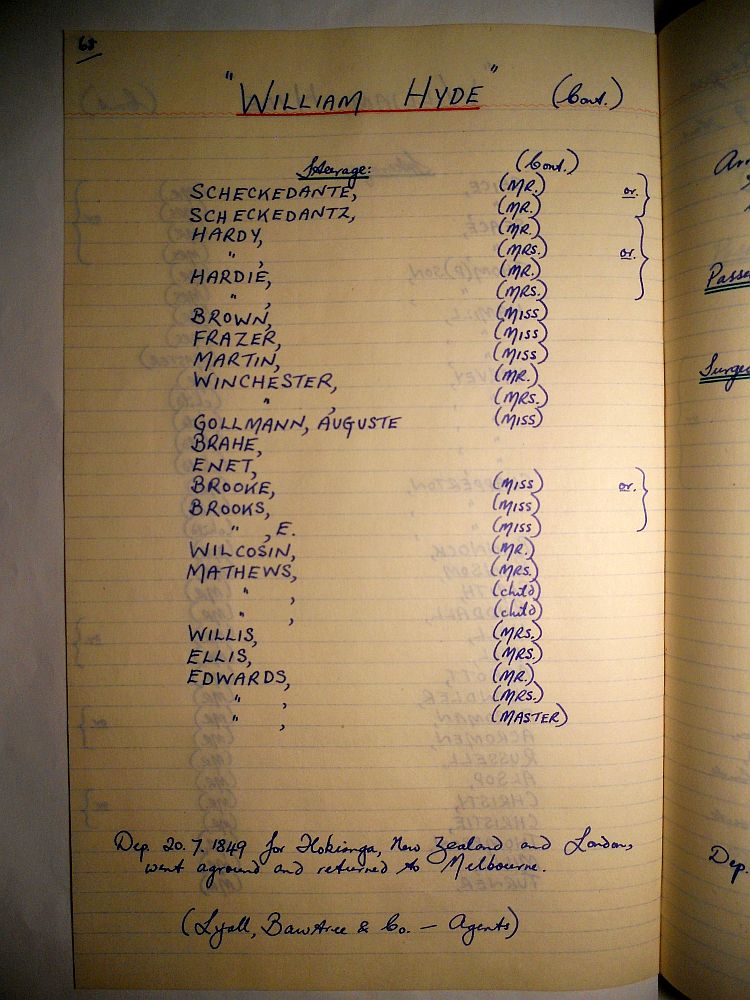 68
"WILLIAM HYDE" (Cont.)
Steerage: (Cont.)
SCHECKEDANTE, (MR.) or.
SCHECKEDANTZ, (MR.)
HARDY, (MR.)
" , (MRS.) or.
HARDIE, (MR.)
" , (MRS.)
BROWN, (MISS)
FRAZER, (MISS)
MARTIN, (MISS)
WINCHESTER, (MR.)
" , (MRS.)
GOLLMANN, AUGUSTE (MISS)
BRAHE,
ENET,
BROOKE, (MISS) or.
BROOKS, (MISS)
" , E. (MISS)
WILCOSIN, (MR.)
MATHEWS, (MRS.)
" , (child)
" , (child)
WILLIS, (MRS.)
ELLIS, (MRS.)
EDWARDS, (MR.)
" , (MRS.)
" , (MASTER)
Dep. 20.7.1849 for Hokianga, New Zealand and London,
went aground and returned to Melbourne.
(Lyall, Bawtree & Co. — Agents)
Dep.